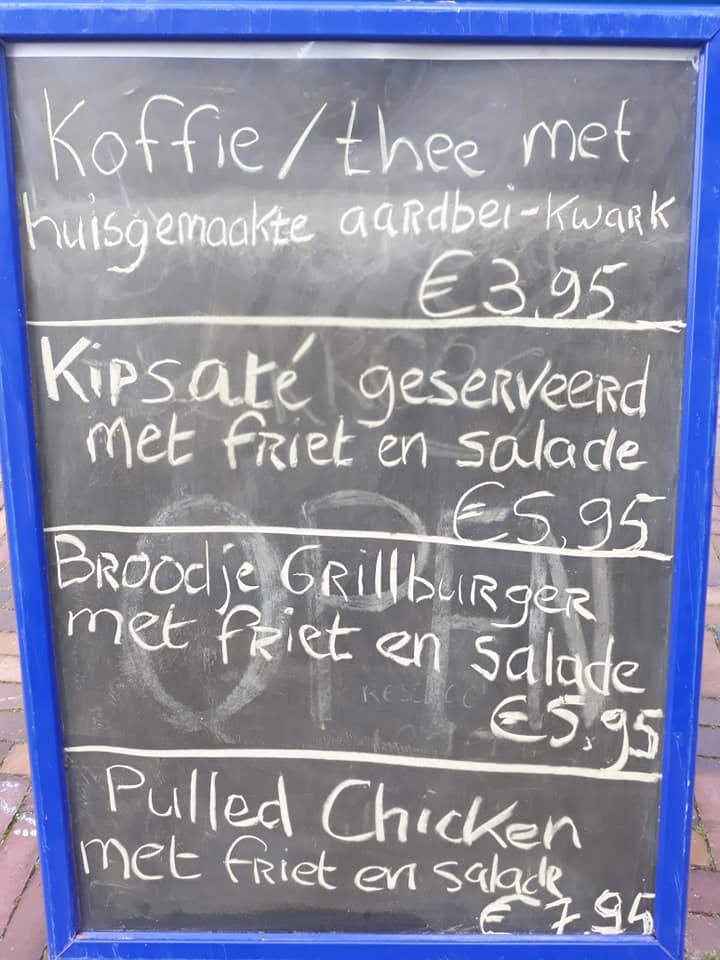 Koffie/thee met
huisgemaakte aardbei-kwark
€3,95
Kipsaté geserveerd
met friet en salade
€5,95
Broodje Grillburger
met friet en salade
€5,95
Pulled Chicken
met friet en salade
€7,95
OPEN